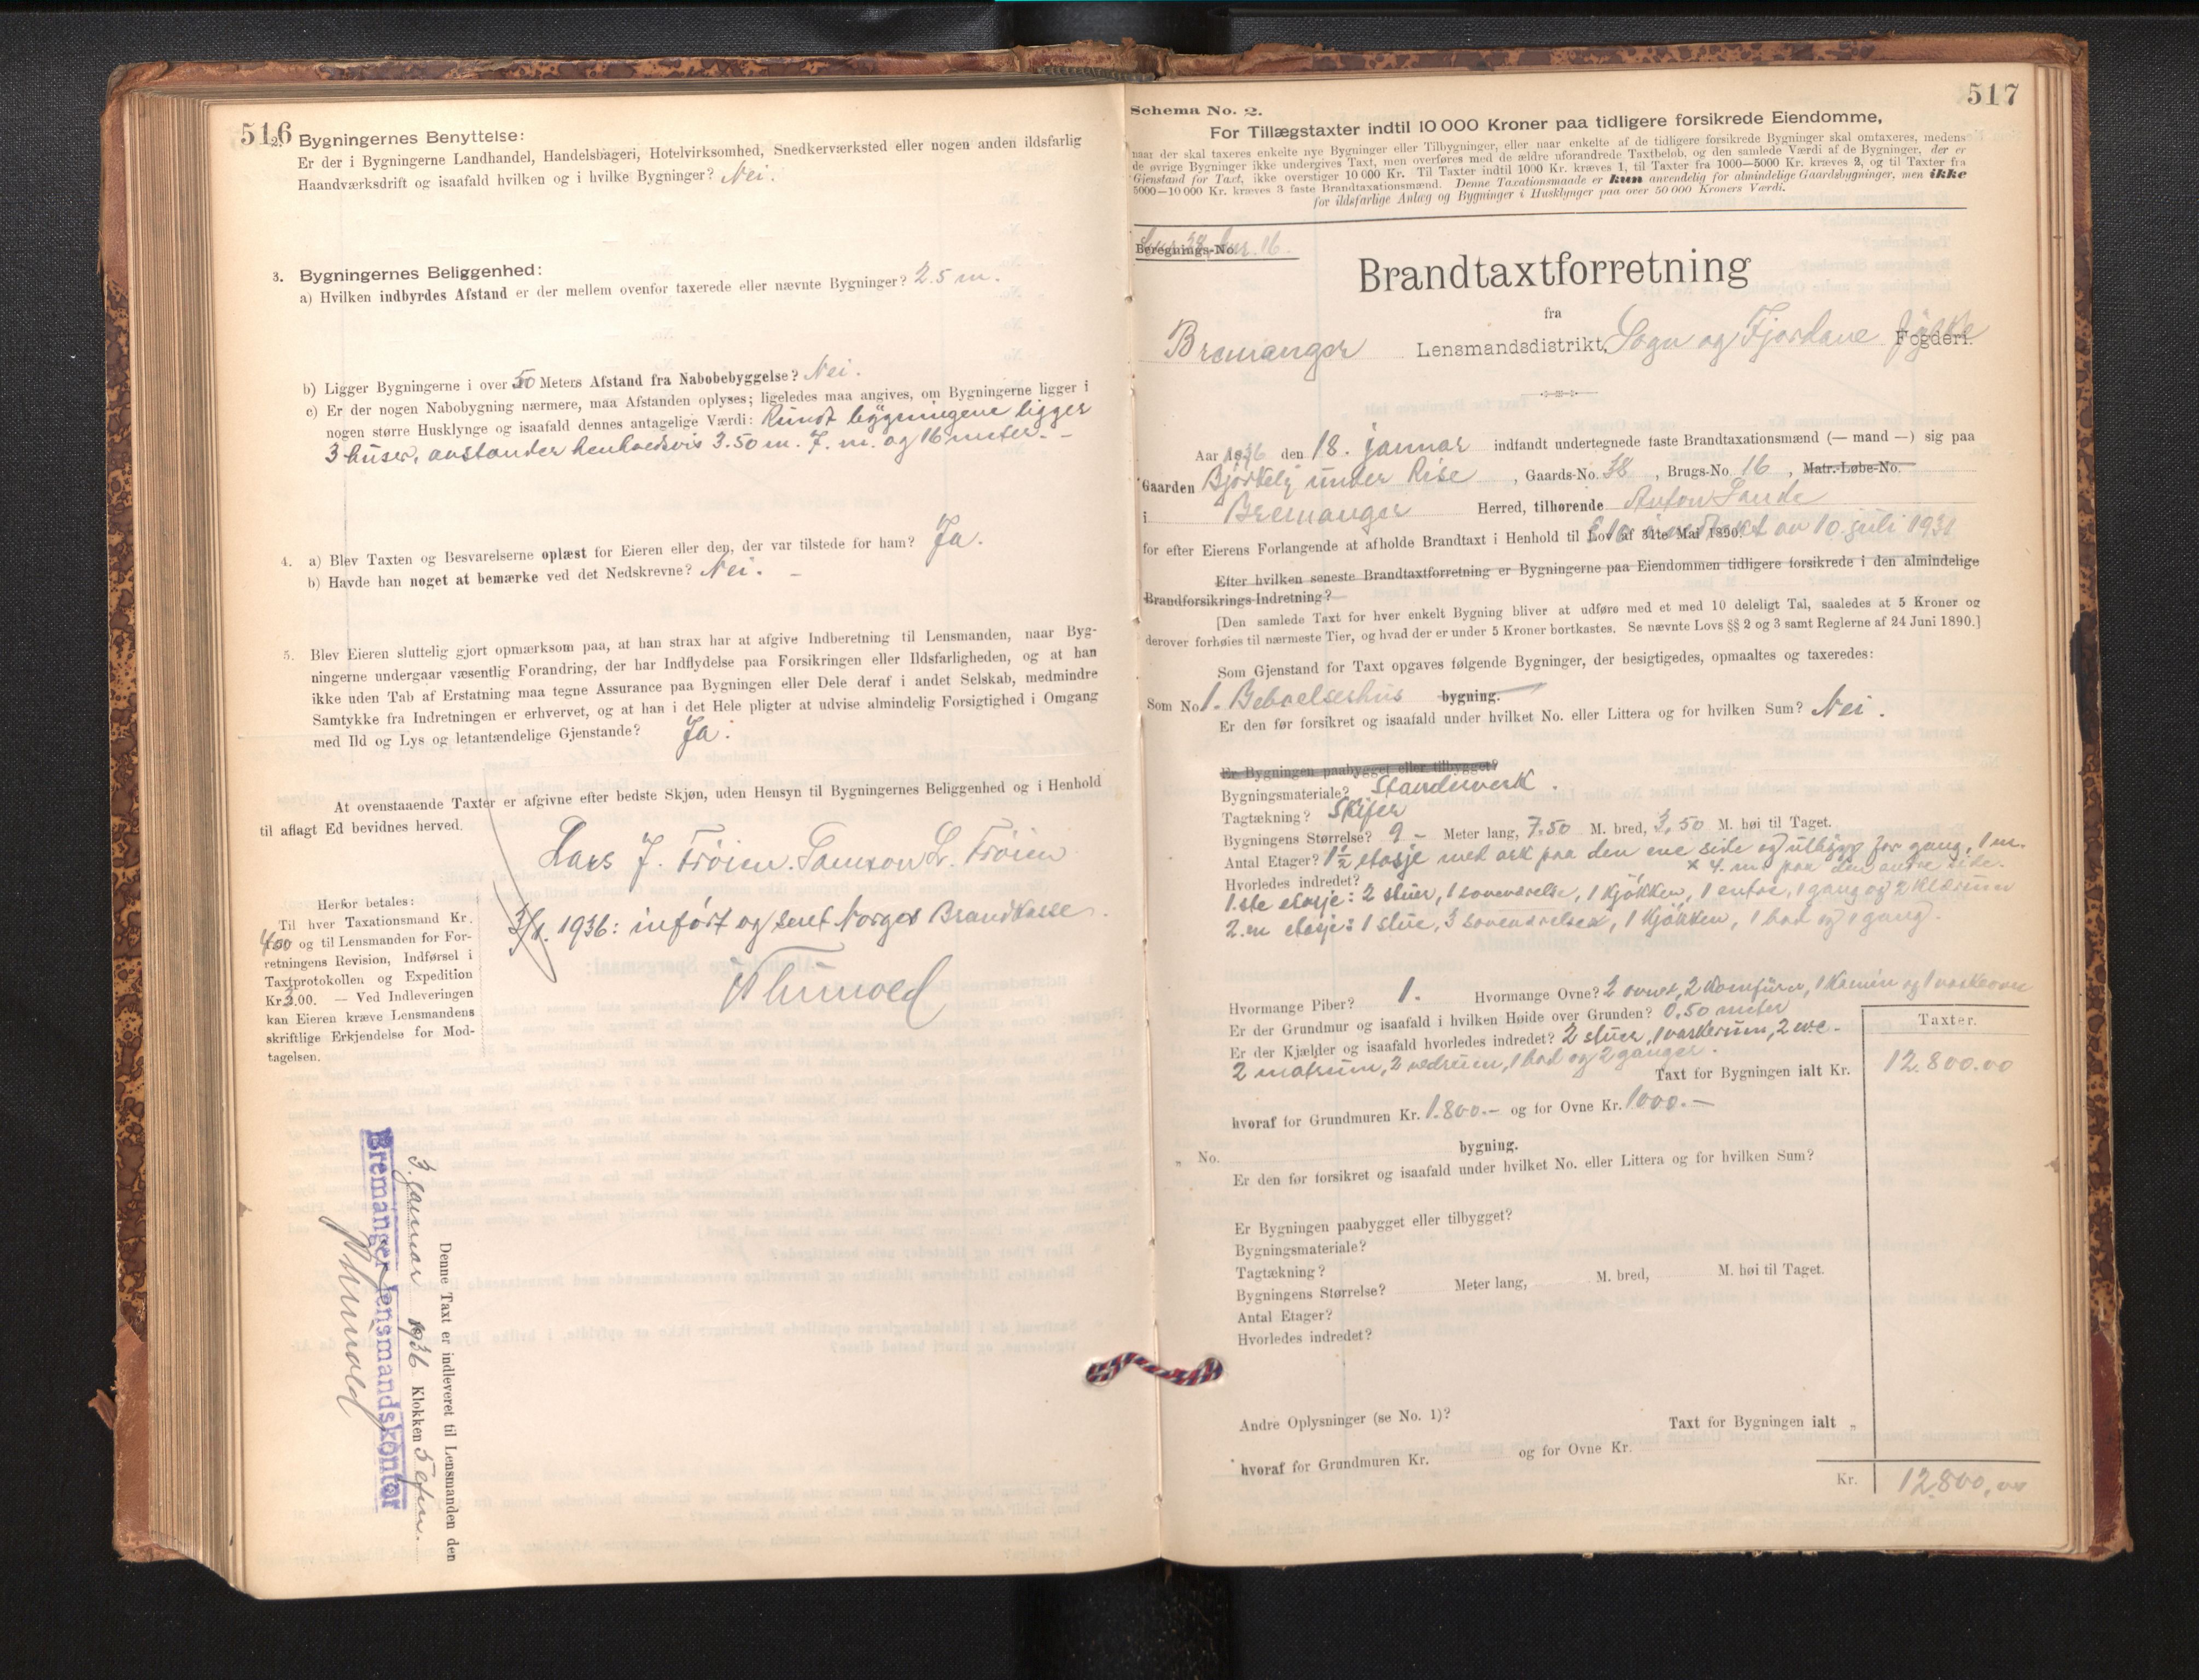 516
2. Bygningernes Benyttelse:
Er der i Bygningerne Landhandel, Handelsbageri, Hotelvirksomhed, Snedkerværksted eller nogen anden ildsfarlig
Haandværksdrift og isaafald hvilken og i hvilke Bygninger? Nei.
3. Bygningernes Beliggenhed:
a) Hvilken indbyrdes Afstand er der mellem ovenfor taxerede eller nævnte Bygninger? 25 m.
b) Ligger Bygningerne i over 50 Meters Afstand fra Nabobebyggelse? Nei.
c) Er der nogen Nabobygning nærmere, maa Afstanden oplyses; ligeledes maa angives, om Bygningerne ligger i
nogen større Husklynge og isaafald dennes antagelige Værdi: Rundt bygningene ligger
3 huser, avstander henholdsvis 3.50 m. 7. m. og 16 meter. -
4. a) Blev Taxten og Besvarelserne oplæst for Eieren eller den, der var tilstede for ham? Ja.
b) Havde han noget at bemærke ved det Nedskrevne? Nei. -
5. Blev Eieren sluttelig gjort opmærksom paa, at han strax har at afgive Indberetning til Lensmanden, naar Byg-
ningerne undergaar væsentlig Forandring, der har Indflydelse paa Forsikringen eller Ildsfarligheden, og at han
ikke uden Tab af Erstatning maa tegne Assurance paa Bygningen eller Dele deraf i andet Selskab, medmindre
Samtykke fra Indretningen er erhvervet, og at han i det Hele pligter at udvise almindelig Forsigtighed i Omgang
med Ild og Lys og letantændelige Gjenstande? Ja.
At ovenstaaende Taxter er afgivne efter bedste Skjøn, uden Hensyn til Bygningernes Beliggenhed og i Henhold
til aflagt Ed bevidnes herved.
Lars J. Frøien. Samson L. Frøien
3/1. 1936: inført og sent Norges Brandkasse.
Herfor betales:
Til hver Taxationsmand Kr.
4.00 og til Lensmanden for For-
retningens Revision, Indførsel i
Taxtprotokollen og Expedition
Kr. 3.00. — Ved Indleveringen
kan Eieren kræve Lensmandens
skriftlige Erkjendelse for Mod-
tagelsen.
Denne Taxt er indleveret til Lensmanden den
3. januar 1936 Klokken 5 efm.
Bremanger lensmandskontor
517
Schema No. 2.
For Tillægstaxter indtil 10 000 Kroner paa tidligere forsikrede Eiendomme,
naar der skal taxeres enkelte nye Bygninger eller Tilbygninger, eller naar enkelte af de tidligere forsikrede Bygninger skal omtaxeres, medens
de øvrige Bygninger ikke undergives Taxt, men overføres med de ældre uforandrede Taxtbeløb, og den samlede Værdi af de Bygninger, der er
Gjenstand for Taxt, ikke overstiger 10 000 Kr. Til Taxter indtil 1000 Kr. kræves 1, til Taxter fra 1000—5000 Kr. kræves 2, og til Taxter fra
5000—10 000 Kr. kræves 3 faste Brandtaxationsmænd. Denne Taxationsmaade er kun anvendelig for almindelige Gaardsbygninger, men ikke
for ildsfarlige Anlæg og Bygninger i Husklynger paa over 50 000 Kroners Værdi.
Beregnings-No. 38 16.
Brandtaxtforretning
fra
Bremanger Lensmandsdistrikt, Sogn og Fjordane fylke Fogderi.
Aar 1936 den 18. januar indfandt undertegnede faste Brandtaxationsmænd (— mand —) sig paa
Gaarden Bjørkely under Rise, Gaards-No. 38, Brugs-No. 16, Matr.-Løbe-No.
i Bremanger Herred, tilhørende Anton Sande
for efter Eierens Forlangende at afholde Brandtaxt i Henhold til Lov af 31te Mai 1890. av 10. juli 1931
Efter hvilken seneste Brandtaxtforretning er Bygningerne paa Eiendommen tidligere forsikrede i den almindelige
Brandforsikrings-Indretning?
[Den samlede Taxt for hver enkelt Bygning bliver at udføre med et med 10 deleligt Tal, saaledes at 5 Kroner og
derover forhøies til nærmeste Tier, og hvad der er under 5 Kroner bortkastes. Se nævnte Lovs §§ 2 og 3 samt Reglerne af 24 Juni 1890.]
Som Gjenstand for Taxt opgaves følgende Bygninger, der besigtigedes, opmaaltes og taxeredes:
Som No 1. Beboelseshus bygning.
Er den før forsikret og isaafald under hvilket No. eller Littera og for hvilken Sum? Nei.
Er Bygningen paabygget eller tilbygget?
Bygningsmateriale? Standerverk.
Tagtækning? Skifer
Bygningens Størrelse? 9 - Meter lang, 7.50 M. bred, 3,50 M. høi til Taget.
Antal Etager? 1½ etasje med ark paa den ene side og utbygg for gang, 1 m.
x 4. m. paa den andre side.
Hvorledes indredet?
1.ste etasje: 2 stuer, 1 soveværelse, 1 kjøkken, 1 entre, 1 gang og 2 klærum
2.en etasje: 1 stue, 3 soveværelser, 1 kjøkken, 1 bad og 1 gang.
Hvormange Piber? 1. Hvormange Ovne? 2 ovner, 2 komfürer, 1 kamin og 1 vaskeovn
Er der Grundmur og isaafald i hvilken Høide over Grunden? 0.50 meter
Er der Kjælder og isaafald hvorledes indredet? 2 stuer, 1 vaskerum, 2 w.c.
2 matrum, 2 vedrum, 1 bad og 2 ganger.
Taxter.
Taxt for Bygningen ialt Kr. 12.800.00
hvoraf for Grundmuren Kr. 1.800.- og for Ovne Kr. 1000.-
„ No. bygning.
Er den før forsikret og isaafald under hvilket No. eller Littera og for hvilken Sum?
Er Bygningen paabygget eller tilbygget?
Bygningsmateriale?
Tagtækning?
Bygningens Størrelse? Meter lang, M. bred, M. høi til Taget.
Antal Etager?
Hvorledes indredet?
Andre Oplysninger (se No. 1)? Taxt for Bygningen ialt „
hvoraf for Grundmuren Kr. og for Ovne Kr.
Kr. 12.800,00